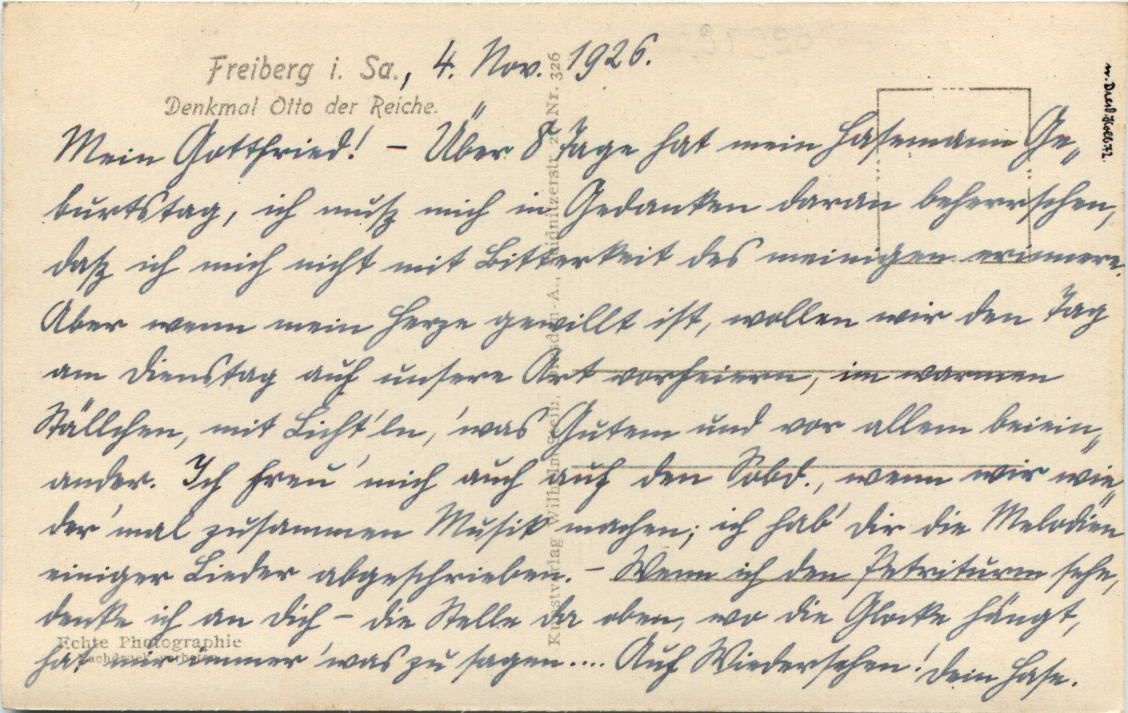 Freiberg i. Sa., 4. Nov. 1926.
Denkmal Otto der Reiche.
Mein Gottfried! – Über 8 Tage hat mein Hasemann Ge„
burtstag, ich muß mich in Gedanken daran beherrschen,
daß ich mich nicht mit Bitterkeit des meinigen erinnere.
Aber wenn mein Herze gewillt ist, wollen wir den Tag
am Dienstag auf unsere Art vorfeiern, im warmen
Ställchen, mit Licht'ln, 'was Gutem und vor allem beiein„
ander. Ich freu' mich auch auf den Sobd., wenn wir wie„
der 'mal zusammen Musik machen; ich hab' dir die Melodien
einiger Lieder abgeschrieben. – Wenn ich den Petriturm sehe,
denke ich an dich – die Stelle da oben, wo die Glocke hängt,
hat mir immer 'was zu sagen.... Auf Wiedersehen! Dein Hase.
Echte Photographie
Nachdruck verboten
Kunstverlag Wilhelm
Nr. 326